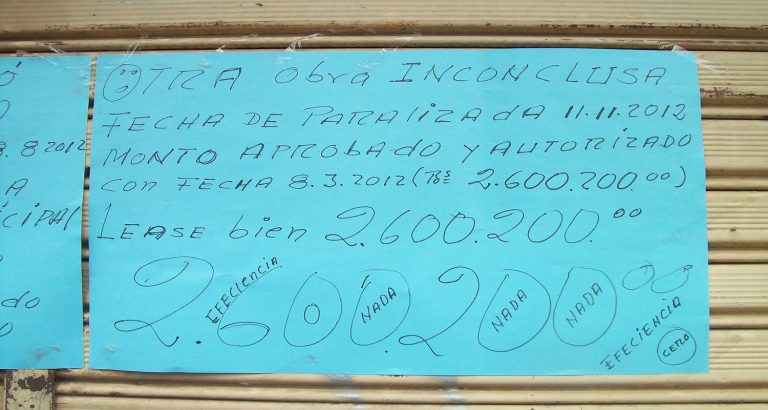 OTRA Obra INCONCLUSA
FECHA DE PARALIZADA 11.11.2012
MONTO APROBADO Y AUTORIZADO
CON FECHA 8.3.2012 (Bs 2.600.200.00)
LEASE bien 2.600.200.00
2.600.200 00
EFECIENCIA
0
NADA
NADA
NADA
IFECIENCIA
CERO
8.2012
A
CIPAL
do